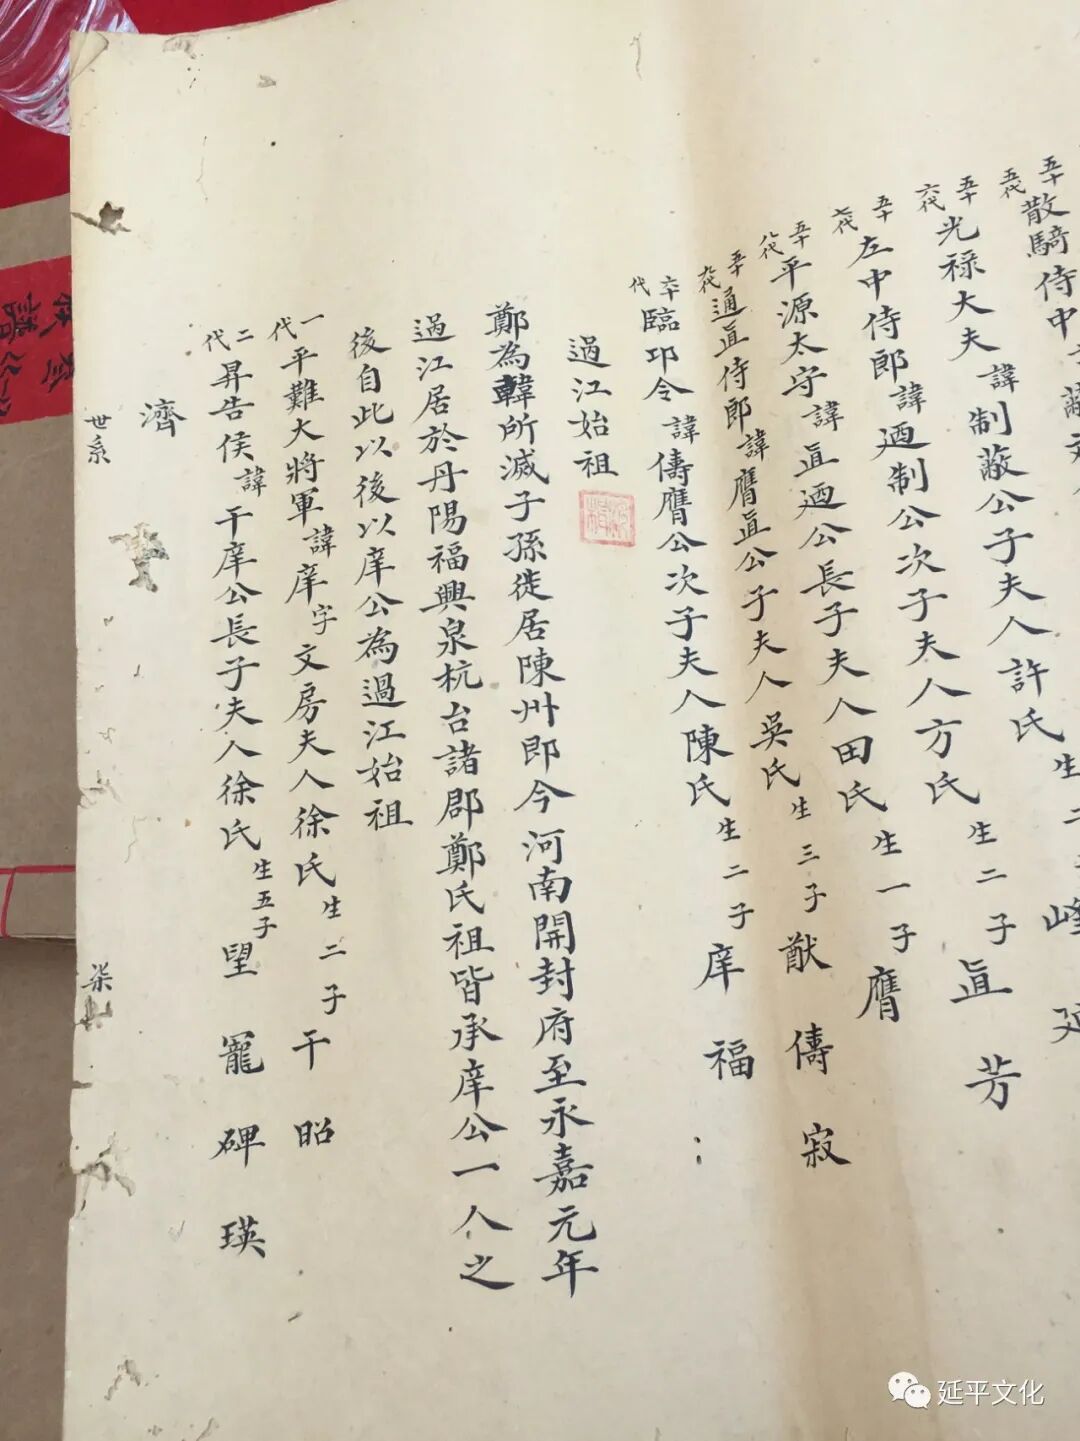 五十五代散騎侍中
五十六代光祿大夫諱制蔽公子夫人許氏生二子峰延
五十七代左中侍郎諱迺制公次子夫人方氏生二子眞芳
五十八代平源太守諱眞迺公長子夫人田氏生一子膺
五十九代通眞侍郎諱膺眞公子夫人吳氏生三子猷儔寂
六十代臨邛令諱儔膺公次子夫人陳氏生二子庠福
過江始祖
鄭為韓所滅子孫徙居陳州即今河南開封府至永嘉元年
過江居於丹陽福興泉杭台諸郡鄭氏祖皆承庠公一人之
後自此以後以庠公為過江始祖
一代平難大將軍諱庠字文房夫人徐氏生二子干昭
二代昇告侯諱干庠公長子夫人徐氏生五子望寵碑瑛
濟
世系
柒
延平文化